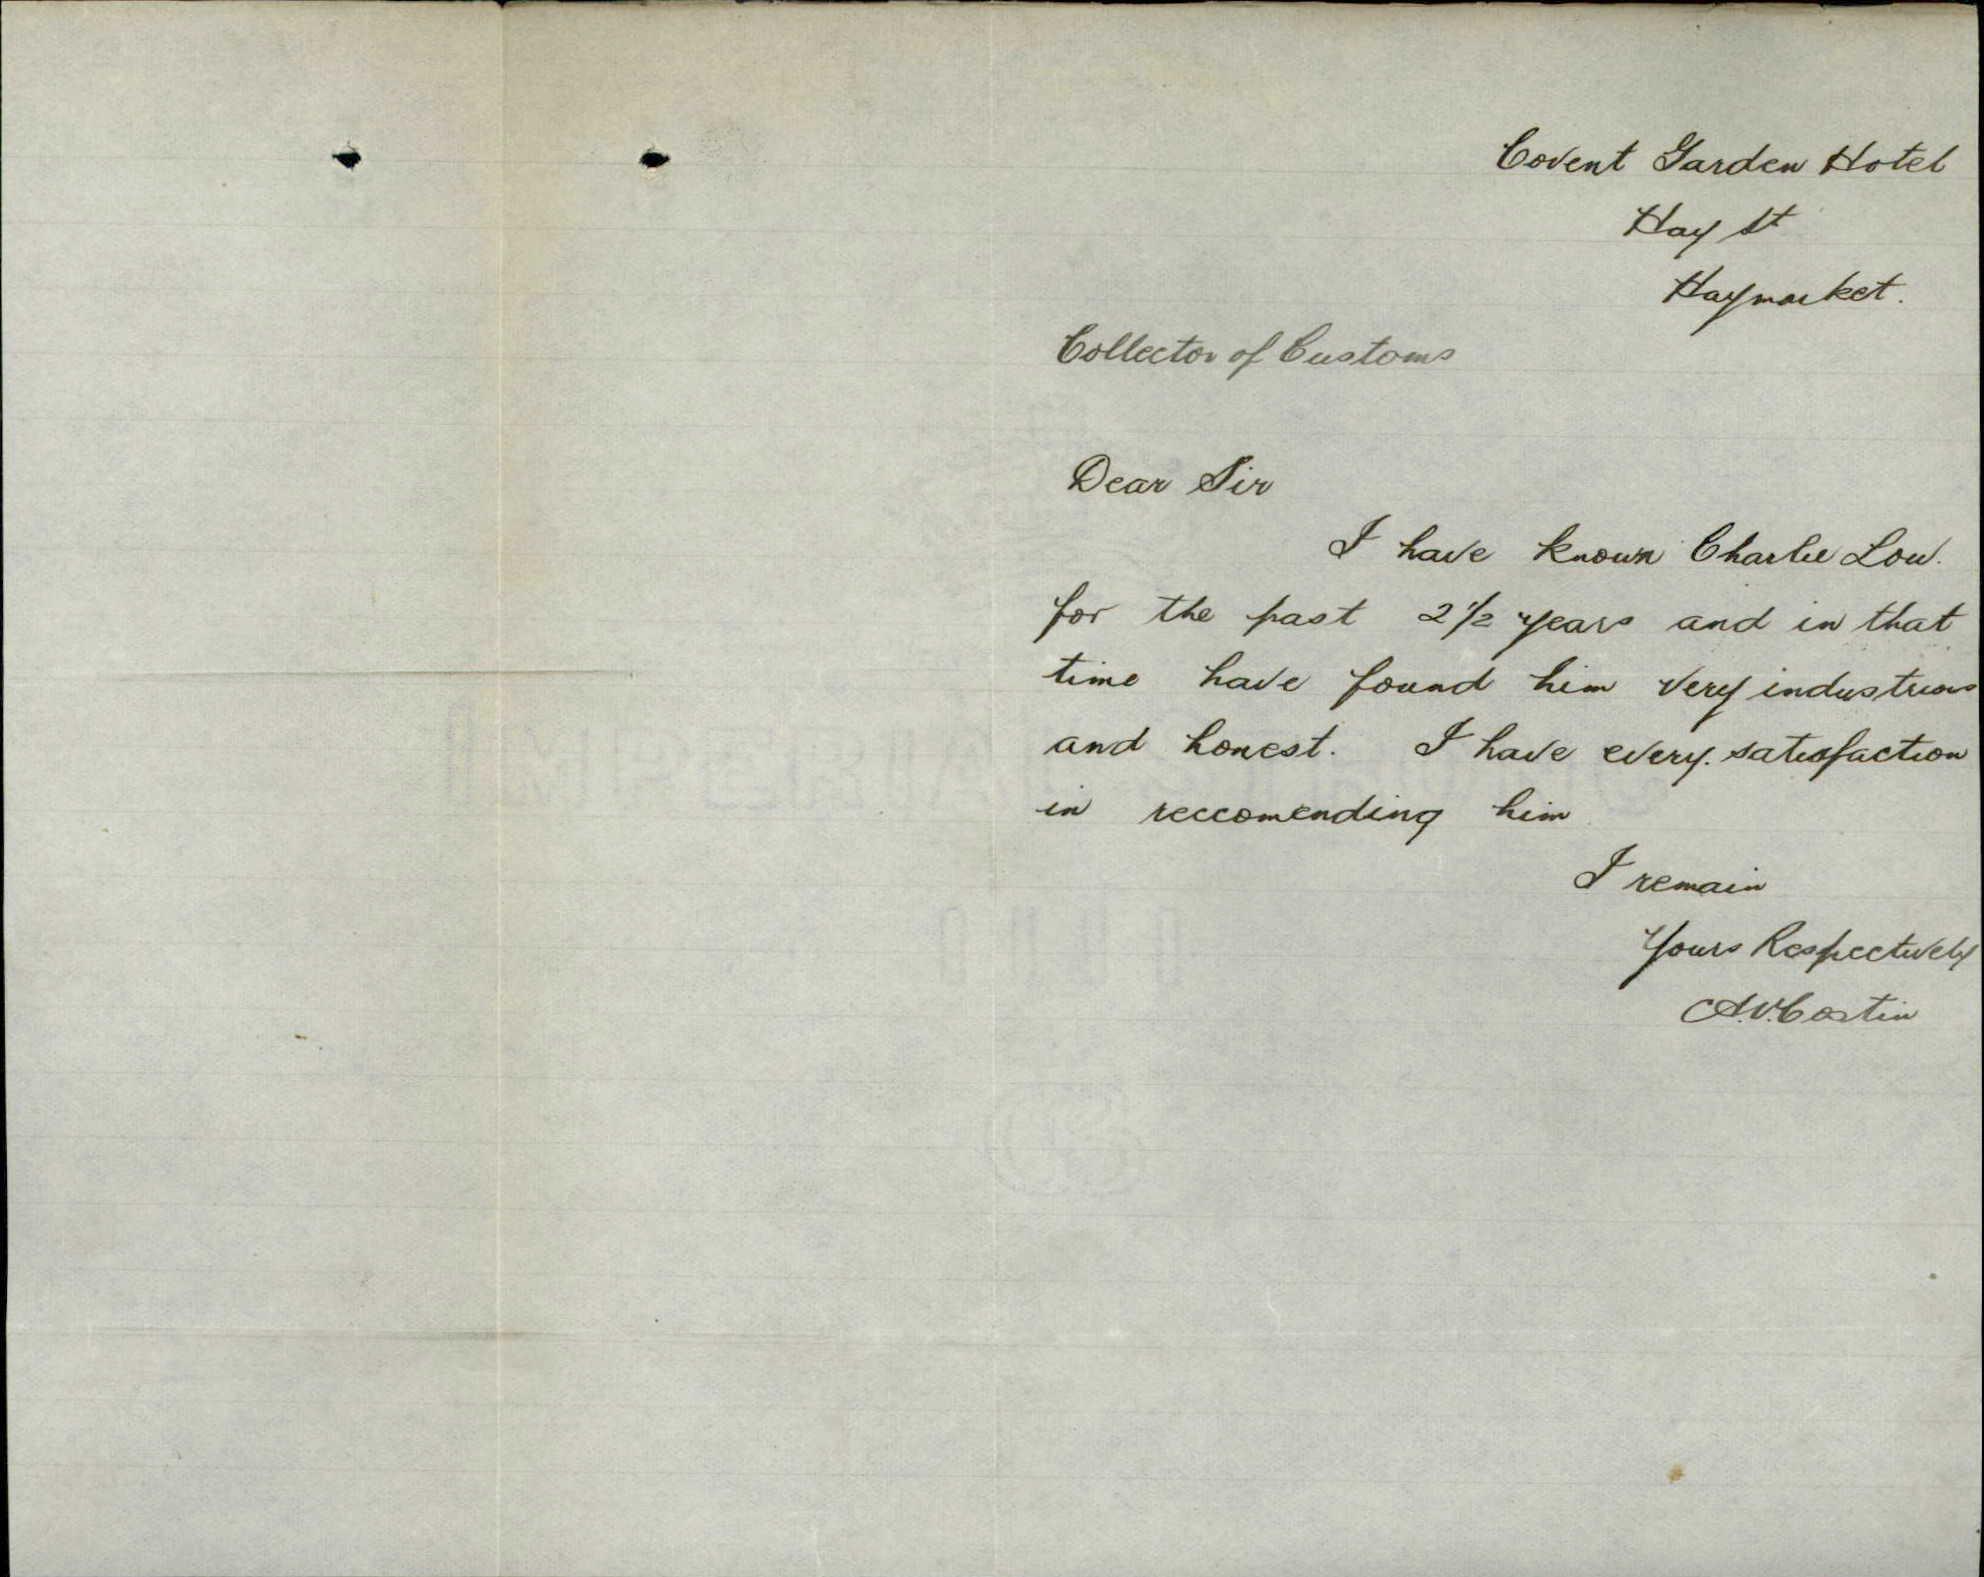 Covent Garden Hotel
Hay St
Haymarket.
Collector of Customs
Dear Sir
I have known Charlie Low.
for the past 2 1/2 years and in that
time have found him very industrious
and honest. I have every. satisfaction
in reccomending him
I remain
Yours Respectively
A.V. Costin